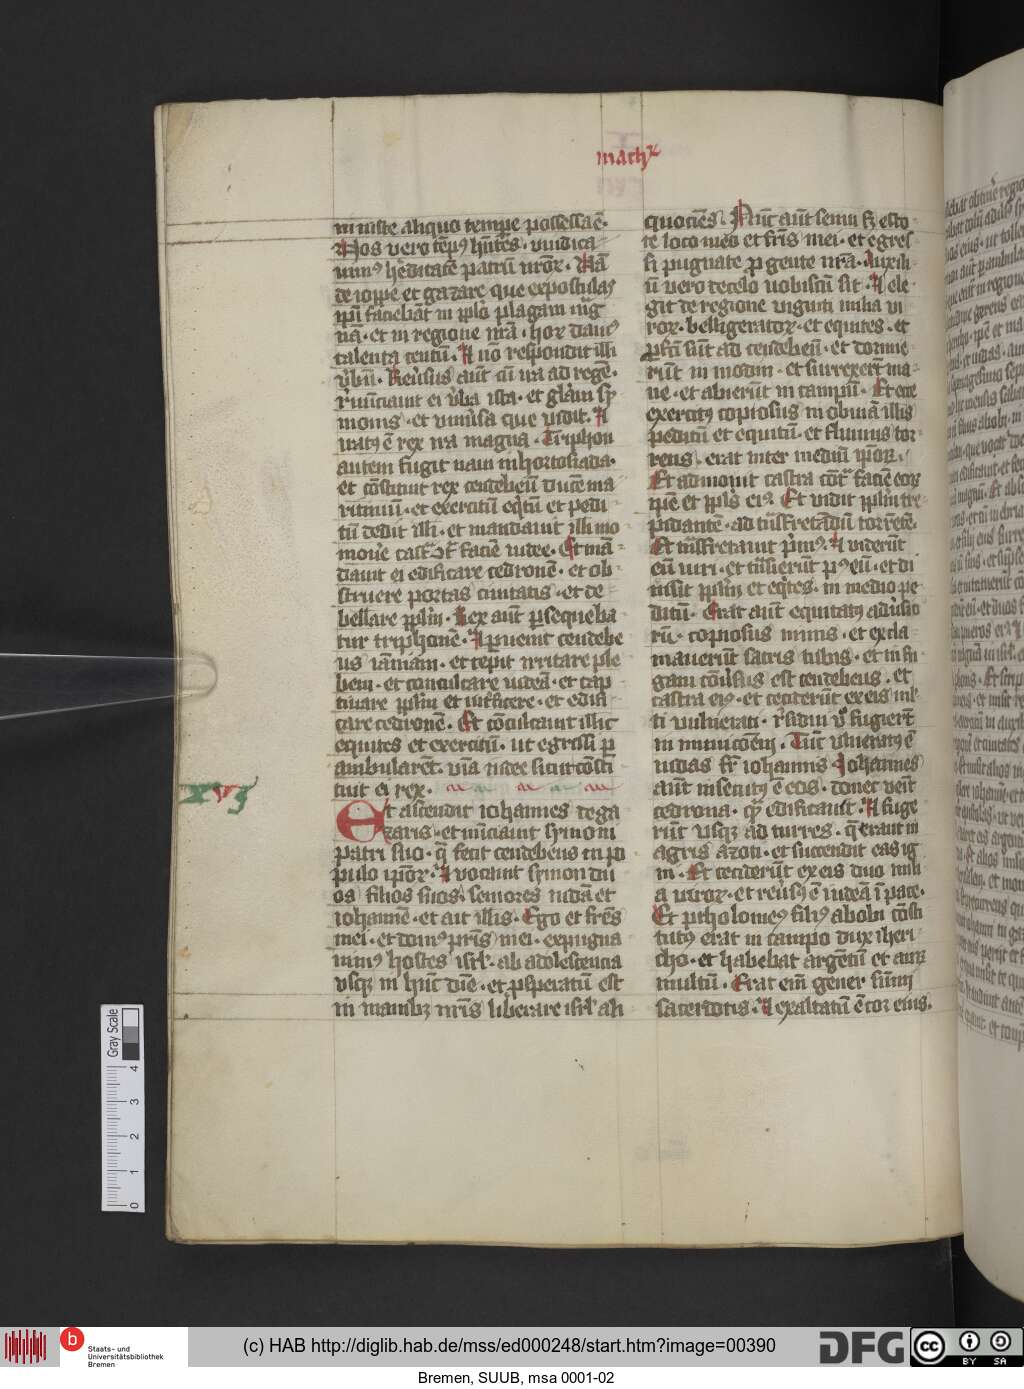 mach
in iuste aliquo tempe̅ possessa e̅.
Nos vero te̅pꝰ hn̅tes. vindica
mus he̅ditate̅ patru̅ nr̅oꝝ. Na̅
de ioppe et gazare que expostulas
ip̅i faciebat in pplo̅ plagam mag
na̅. et in regione nr̅a. hoꝝ damꝰ
talenta centu̅. Et no̅ respondit illi
v̅bu̅. Reu̅sus aut̅ cu̅ ira ad rege̅.
r̅nu̅ciauit ei v̅ba ista. et gl̅am sy
monis. et vniu̅sa que vidit. Et
iratꝰ e̅ rex ira magna. Triphon
autem fugit naui in hortosiada.
et co̅stituit rex cendebeu̅ duce̅ ma
ritimu̅. et exercitu̅ eq̅tu̅ et pedi
tu̅ dedit illi. et mandauit illi mo
moue̅ castra co̅t̅ facie̅ iudee. Et ma̅
dauit ei edificare cedrone̅. et ob
struere portas ciuitatis. et de
bellare pplm̅. Rex aut̅ p̅sequeba
tur triphone̅. Et p̅uenit cendebe
us iamniam. et cepit irritare ple
bem. et conculcare iudea̅. et cap
tiuare pplm̅ et int̅ficere. et edifi
care cedrone̅. Et co̅locauit illic
equites et exercitu̅. ut egressi p̅
ambularet̅. via̅ iudee sicut co̅sti
tuit ei rex.
xvj
Et ascendit iohannes de ga
zaris. et nu̅ciauit symoni
patri suo. q̅ fecit cendebeus in po
pulo ip̅oꝝ. Et vocauit symon du
os filios suos seniores iuda̅ et
iohanne̅. et ait illis. Ego et fr̅es
mei. et domꝰ pr̅is mei. expugna
uimꝰ hostes isr̅l. ab adolescencia
vsqꝫ in hu̅c die̅. et p̅speratu̅ est
in manibꝫ nr̅is liberare isr̅l ali
quocie̅s. Nu̅c aut̅ senui sꝫ esto
te loco meo et fr̅is mei. et egres
si pugnate p̅ gente nr̅a. Auxili
u̅ vero de celo vobiscu̅ sit. Et ele
git de regione viginti milia vi
roꝝ. belligeratoꝝ. et equites. et
p̅fc̅i su̅t ad cendebeu̅. et dormie
ru̅t in modin. et surrexert̅ ma
ne. et abieru̅t in campu̅. Et ecce
exercitꝰ copiosus in obuia̅ illis
peditu̅ et equitu̅. et fluuius tor
rens. erat inter mediu̅ ip̅oꝝ.
Et admouit castra co̅t̅ facie̅ eoꝝ
ip̅e et ppls̅ eiꝰ. Et vidit pplm̅ tre
pidante̅. ad tn̅sfretandu̅ torre̅te̅.
Et tn̅sfretauit p̅imꝰ. Et videru̅t
eu̅ viri. et tn̅sieru̅t pꝰ eu̅. et di
uisit pplm̅ et eq̅tes. in medio pe
ditu̅. Erat aut̅ equitatꝰ adu̅sio
ru̅. copiosus nimis. et excla
maueru̅t sacris tubis. et in fu
gam co̅u̅sus est cendebeus. et
castra eiꝰ. et cecideru̅t ex eis ml̅
ti vulnerati. r̅sidui v̅o fugert̅
in municoe̅m. Tu̅c vulneratꝰ e̅
iudas fr̅ iohannis Iohannes
aut̅ insecutꝰ e̅ eos. donec veni̅t
cedrona. q̅ edificauit. Et fuge
ru̅t vsqꝫ ad turres. q̅ erant in
agris azoti. et succendit eas ig
ni. Et cecideru̅t ex eis duo mili
a viroꝝ. et reu̅sꝰ e̅ iudea̅ i̅ pace.
Et ptholomeꝰ filiꝰ abobi co̅sti
tutꝰ erat in campo dux iheri
cho. et habebat argentu̅ et auꝝ
multu̅. Erat eni̅ gener su̅mi
sacerdotis. Et exaltatu̅ e̅ cor eius.
Gray Scale
4
3
2
1
0
b
Staats- und
Universitätsbibliothek
Bremen
(c) HAB http://diglib.hab.de/mss/ed000248/start.htm?image=00390
DFG
cc BY SA
Bremen, SUUB, msa 0001-02